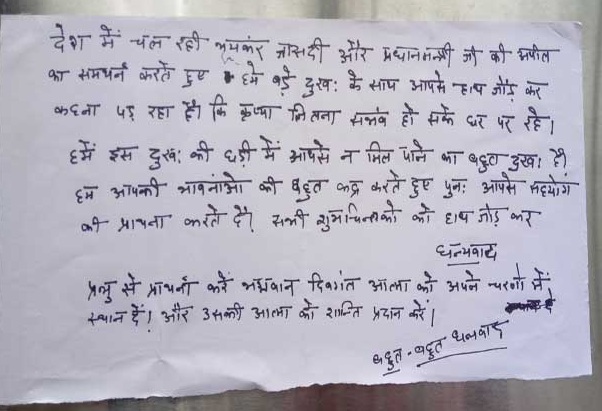 देश में चल रही भयकंर त्रासदी और प्रधानमन्त्री जी की अपील
का समर्थन करते हुए हमे बड़े दुखः के साथ आपसे हाथ जोड़ कर
कहना पड़ रहा है। कि कृप्या जितना सभंव हो सके घर पर रहें।
हमें इस दुखः की घड़ी में आपसे न मिल पाने का बहुत दुखः है।
हम आपकी भावनाओं की बहुत कद्र करते हुए पुनः आपसे सहयोग
की प्राथना करते हैं। सभी शुभचिन्तको को हाथ जोड़ कर
धन्यवाद
प्रभु से प्राथना करें भगवान दिवगंत आत्मा को अपने चरणो में
स्थान दें। और उसकी आत्मा को शान्ति प्रदान करें।
बहुत-बहुत धन्यवाद